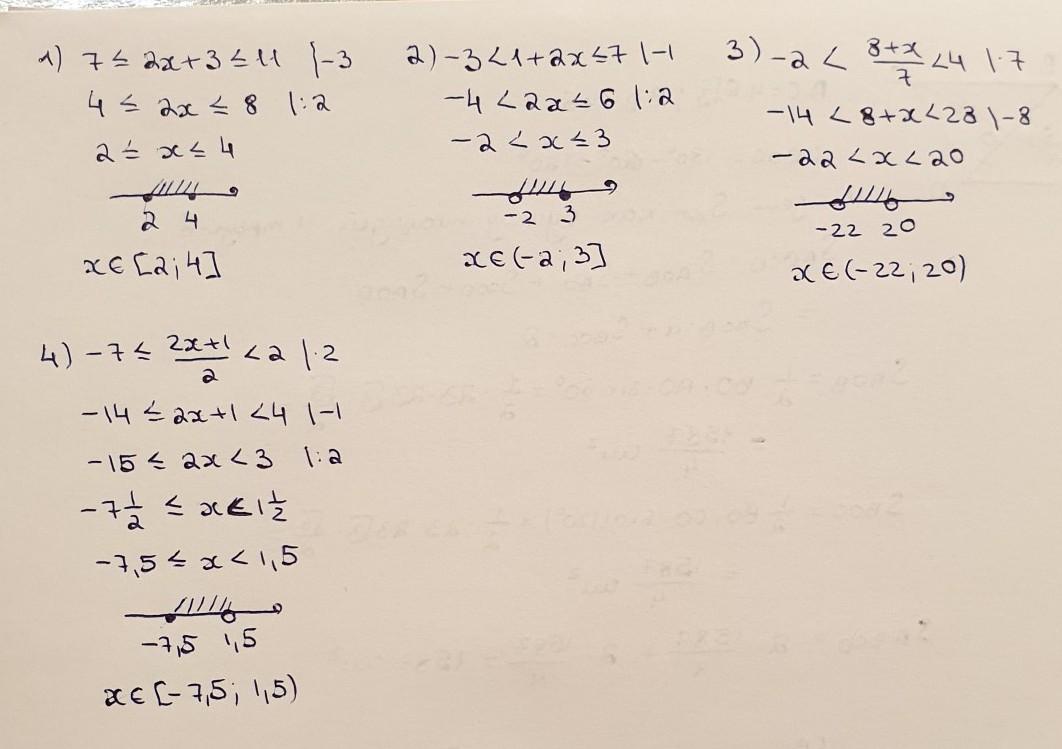 1) 7 ≤ 2x+3 ≤ 11 |-3
4 ≤ 2x ≤ 8 |:2
2 ≤ x ≤ 4
2 4
x∈[2;4]
2) -3<1+2x≤7 |-1
-4<2x≤6 |:2
-2<x≤3
-2 3
x∈(-2;3]
3) -2 < (8+x)/7 <4 |·7
-14 <8+x<28 \-8
-22<x<20
-22 20
x∈(-22;20)
4) -7≤ (2x+1)/2 <2 |·2
-14 ≤2x+1<4 |-1
-15 ≤ 2x<3 |:2
-7 1/2 ≤ x< 1 1/2
-7,5 ≤ x < 1,5
-7,5 1,5
x∈[-7,5; 1,5)